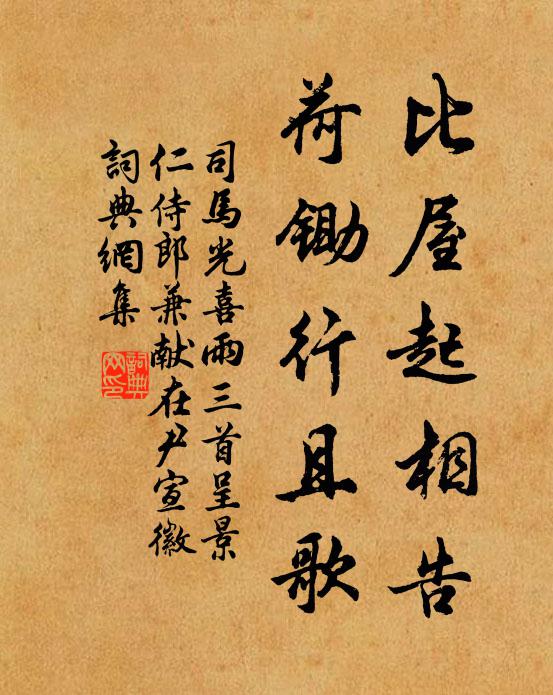 比屋起相告
荷鋤行且歌
司馬光喜雨三首呈景
仁侍郎兼献在尹宣徽
詞典網集
詞典網印